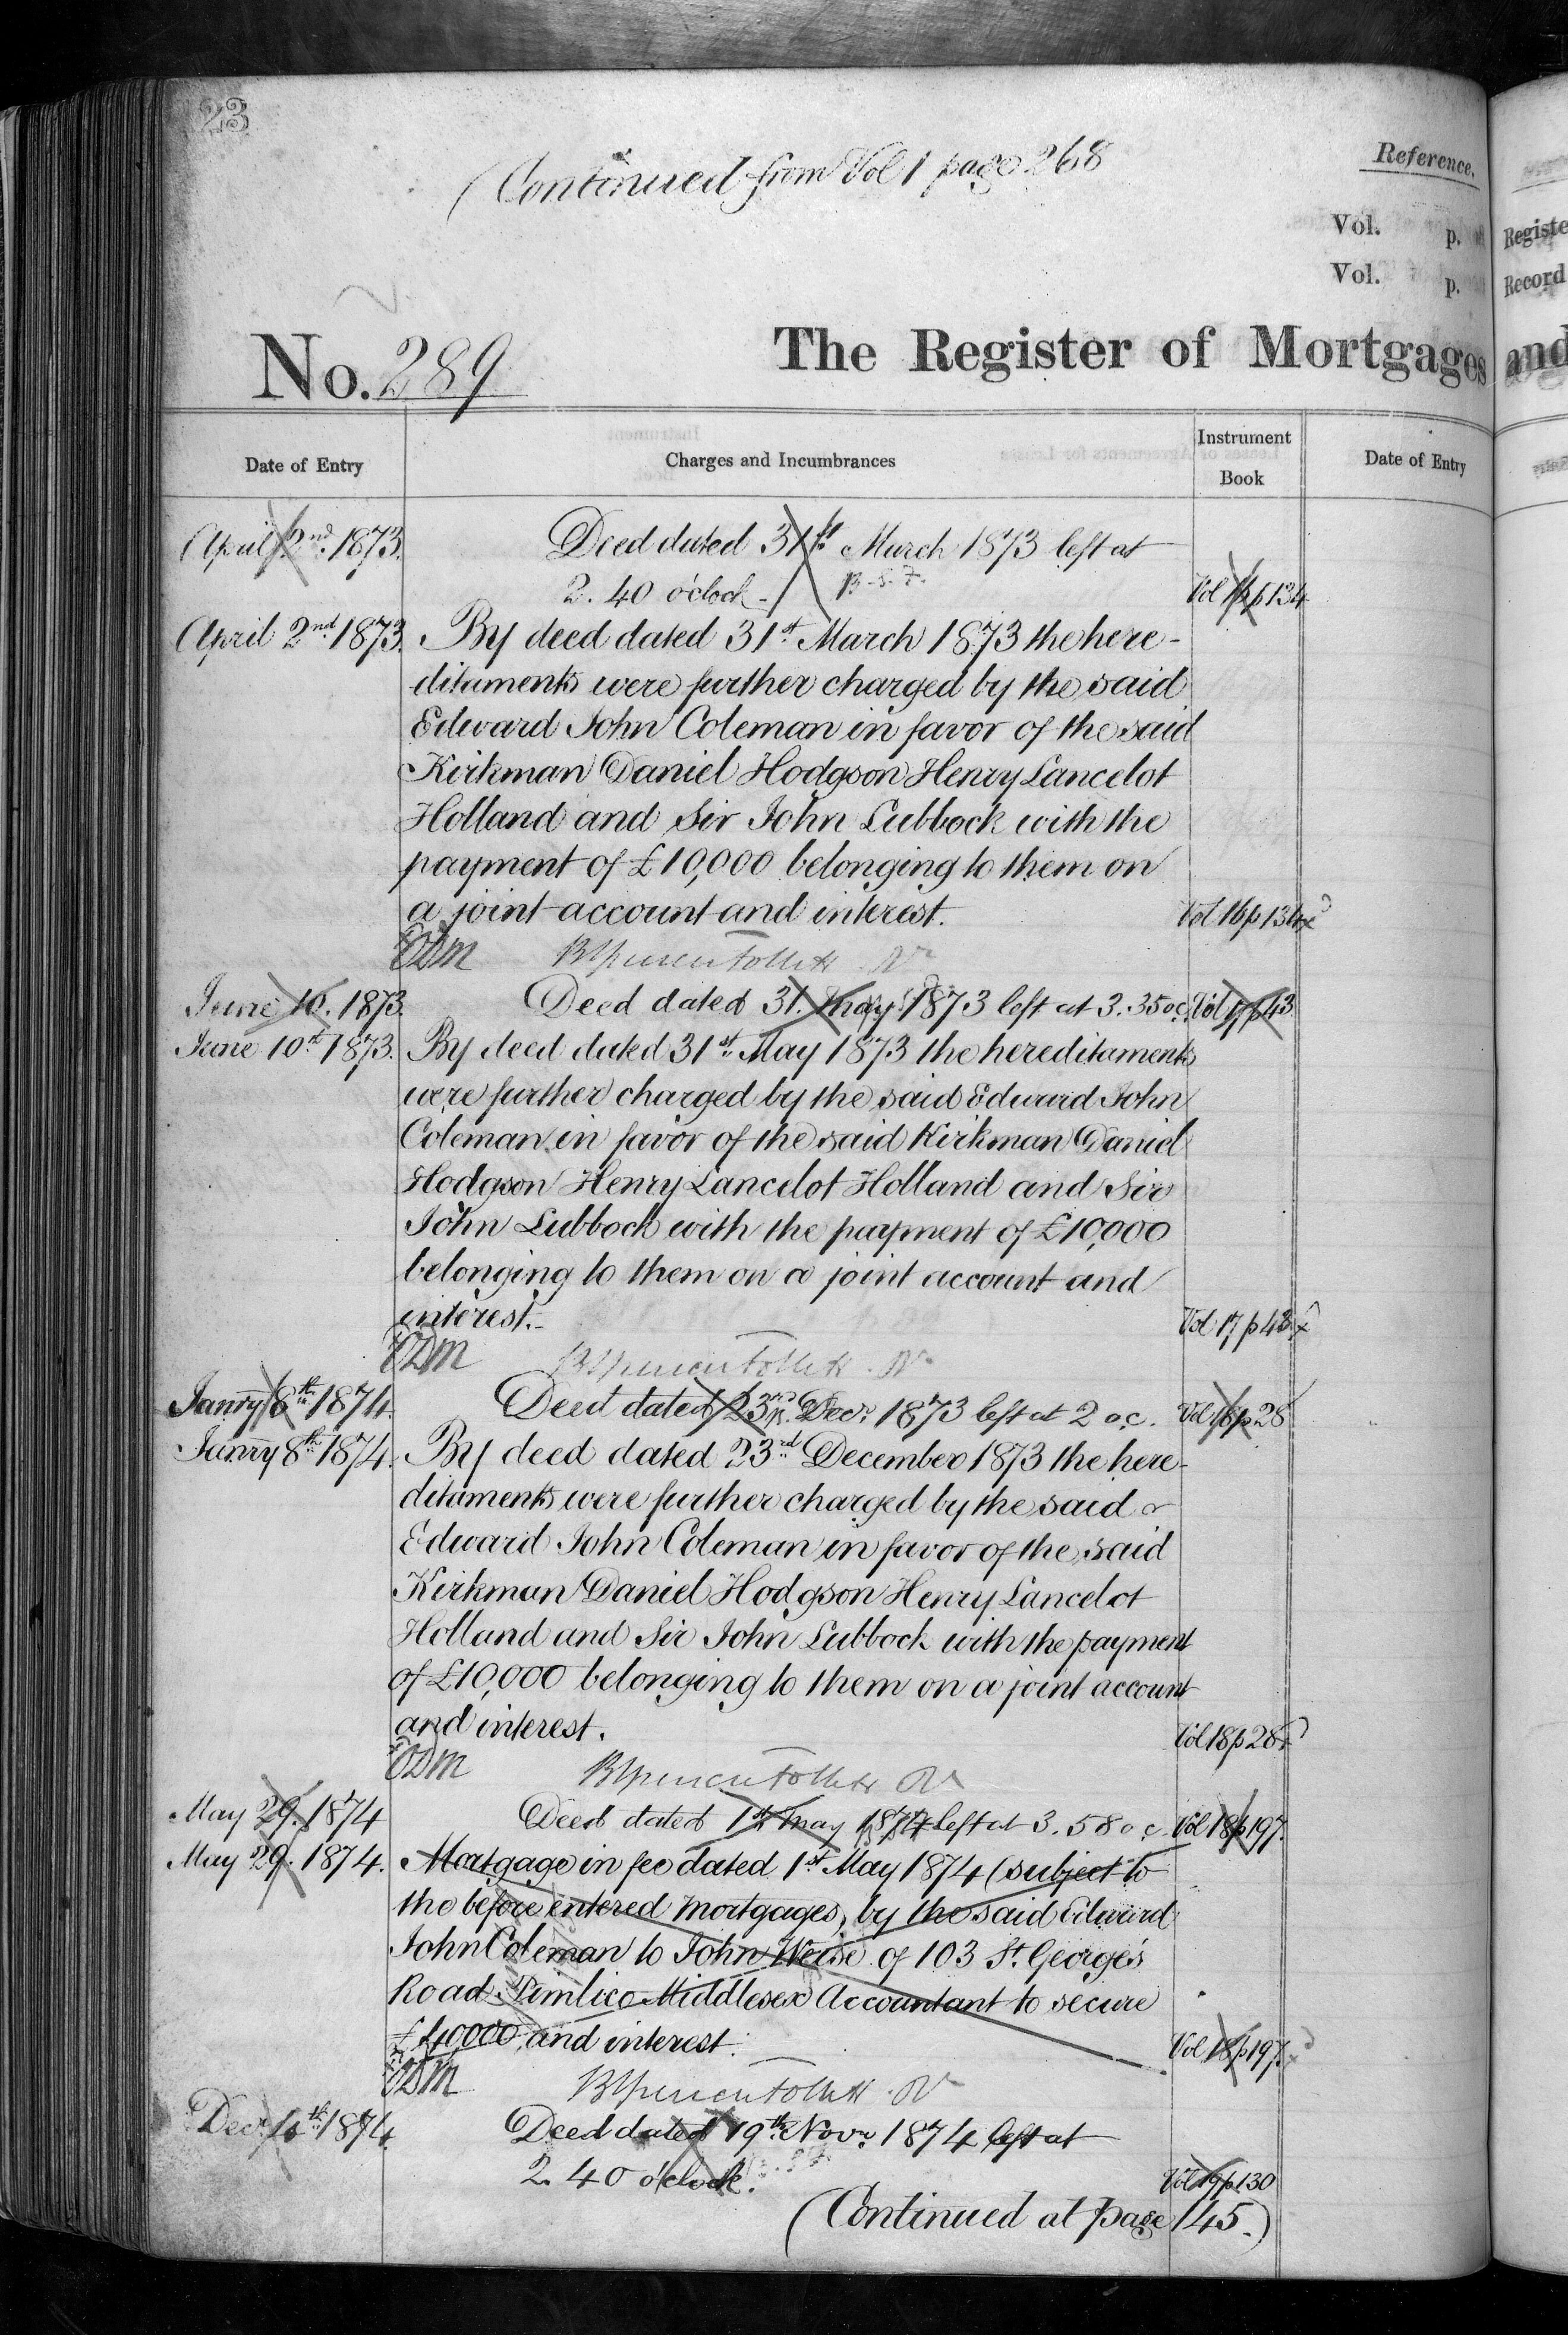 23
(Continued from Vol 1 page 268
Reference.
Vol. p.
Vol. p.
Registe
Record
No. 289
The Register of Mortgages and
Date of Entry
Charges and Incumbrances
Instrument Book
Date of Entry
April 2nd. 1873. Deed dated 31st March 1873 left at
2. 40 o'clock - B.S.F. Vol 16 p 134
April 2nd 1873. By deed dated 31st March 1873 the here-
ditaments were further charged by the said
Edward John Coleman in favor of the said
Kirkman Daniel Hodgson Henry Lancelot
Holland and Sir John Lubbock with the
payment of £10,000 belonging to them on
a joint account and interest. Vol 16 p 134 x
ODM
June 10. 1873. Deed dated 31. May. 1873 left at 3. 35 oc. Vol 17 p 43
June 10th 1873. By deed dated 31st May 1873 the hereditaments
were further charged by the said Edward John
Coleman in favor of the said Kirkman Daniel
Hodgson Henry Lancelot Holland and Sir
John Lubbock with the payment of £10,000
belonging to them on a joint account and
interest.- Vol 17 p 43 x
ODM
Janry 8th 1874. Deed dated 23rd Decr. 1873 left at 2 oc. Vol 18 p 28
Janry 8th 1874. By deed dated 23rd December 1873 the here-
ditaments were further charged by the said
Edward John Coleman in favor of the said
Kirkman Daniel Hodgson Henry Lancelot
Holland and Sir John Lubbock with the payment
of £10,000 belonging to them on a joint account
and interest. Vol 18 p 28 x
ODM
May 29. 1874 Deed dated 1st May 1874 left at 3. 58 oc Vol 18 p 197.
May 29. 1874. Mortgage in fee dated 1st May 1874 (subject to
the before entered mortgages) by the said Edward
John Coleman to John Weise of 103 St. George's
Road Pimlico Middlesex Accountant to secure
£40000 and interest. Vol 18 p 197.
ODM
Decr 4th 1874 Deed dated 19th Novr 1874 left at
2. 40 o'clock. Vol 19 p 130
(Continued at page 145.)